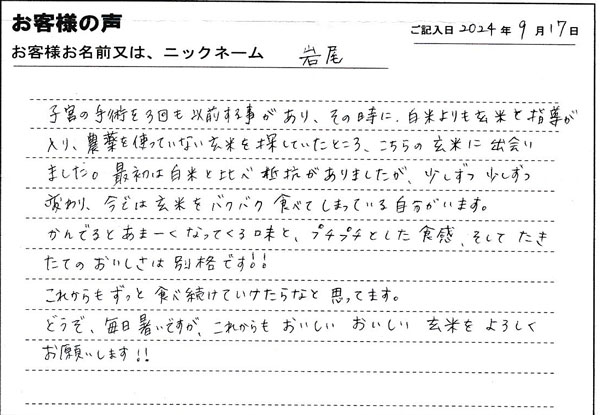 お客様の声
ご記入日 2024年 9月 17日
お客様お名前又は、ニックネーム 岩尾
子宮の手術を3回も以前する事があり、その時に、白米よりも玄米と指導が
入り、農薬を使っていない玄米を探していたところ、こちらの玄米に出会い
ました。最初は白米と比べ抵抗がありましたが、少しずつ少しずつ
変わり、今では玄米をバクバク食べてしまっている自分がいます。
かんでるとあまーくなってくる味と、プチプチとした食感、そしてたき
たてのおいしさは別格です!!
これからもずっと食べ続けていけたらなと思ってます。
どうぞ、毎日暑いですが、これからもおいしいおいしい玄米をよろしく
お願いします!!